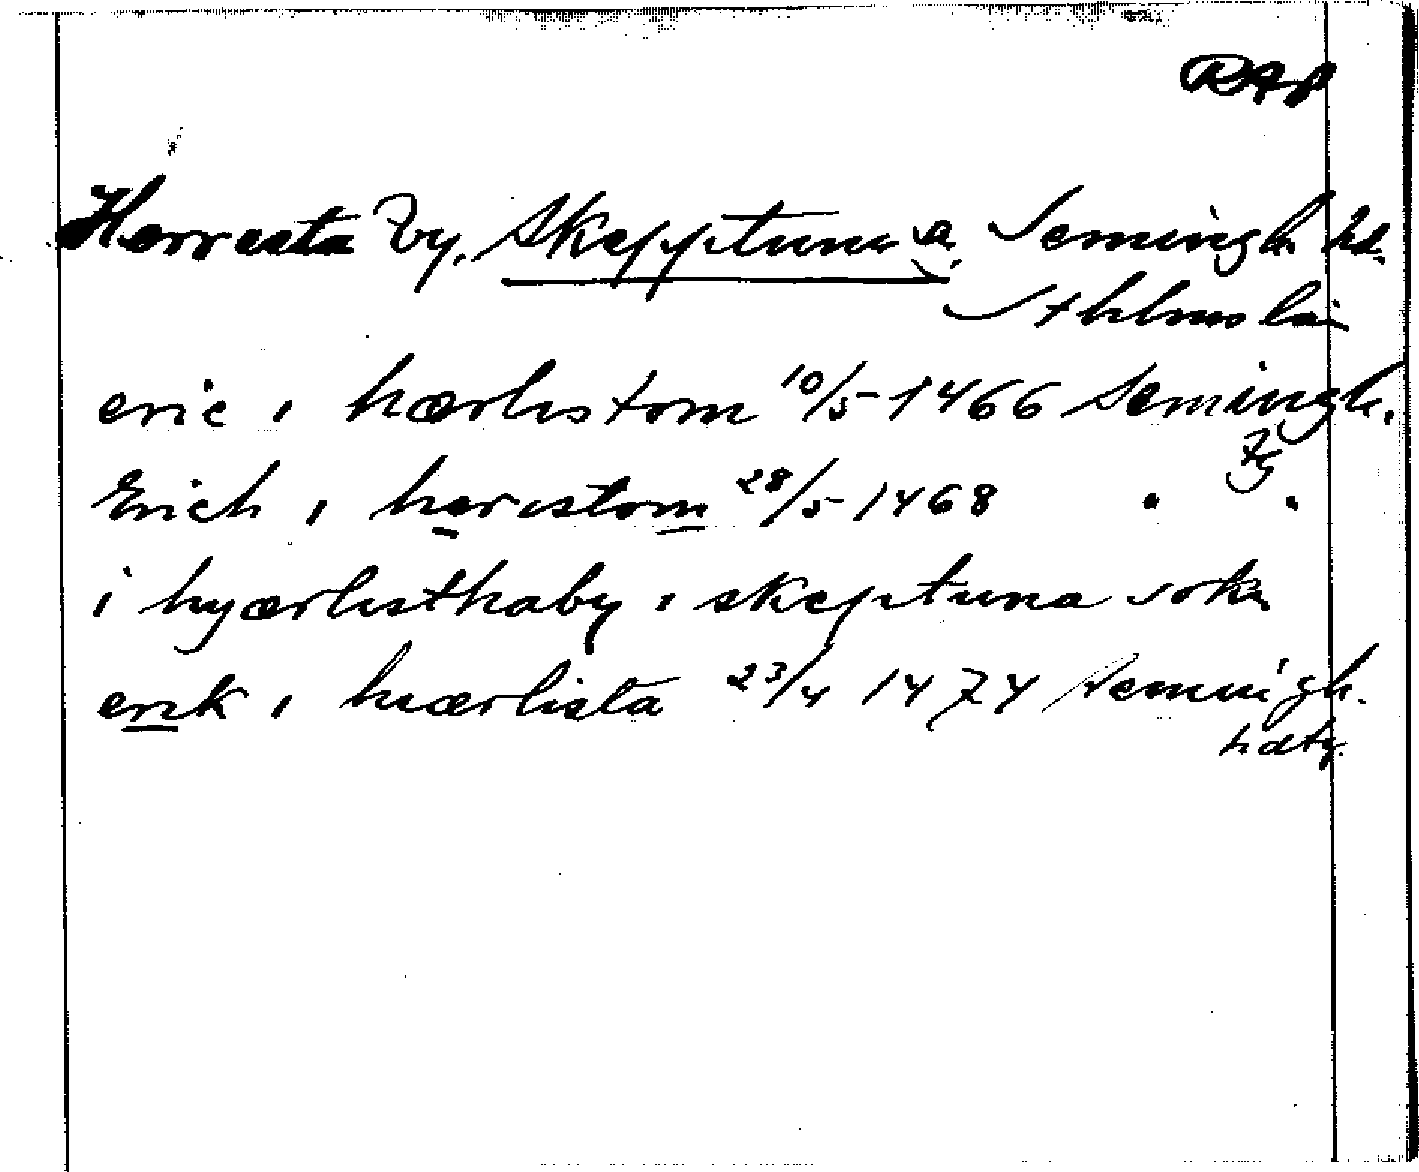 RAP
Herresta by, Skepptuna, Semingh hd.
Sthlms län
eric i hærlistom 10/5 1466 Semingh.
Erich i heristom 28/5 1468 " "
i hyærlisthaby i skeptuna sokn
erik i hiærlista 23/4 1474 Semingh.
hdtg.